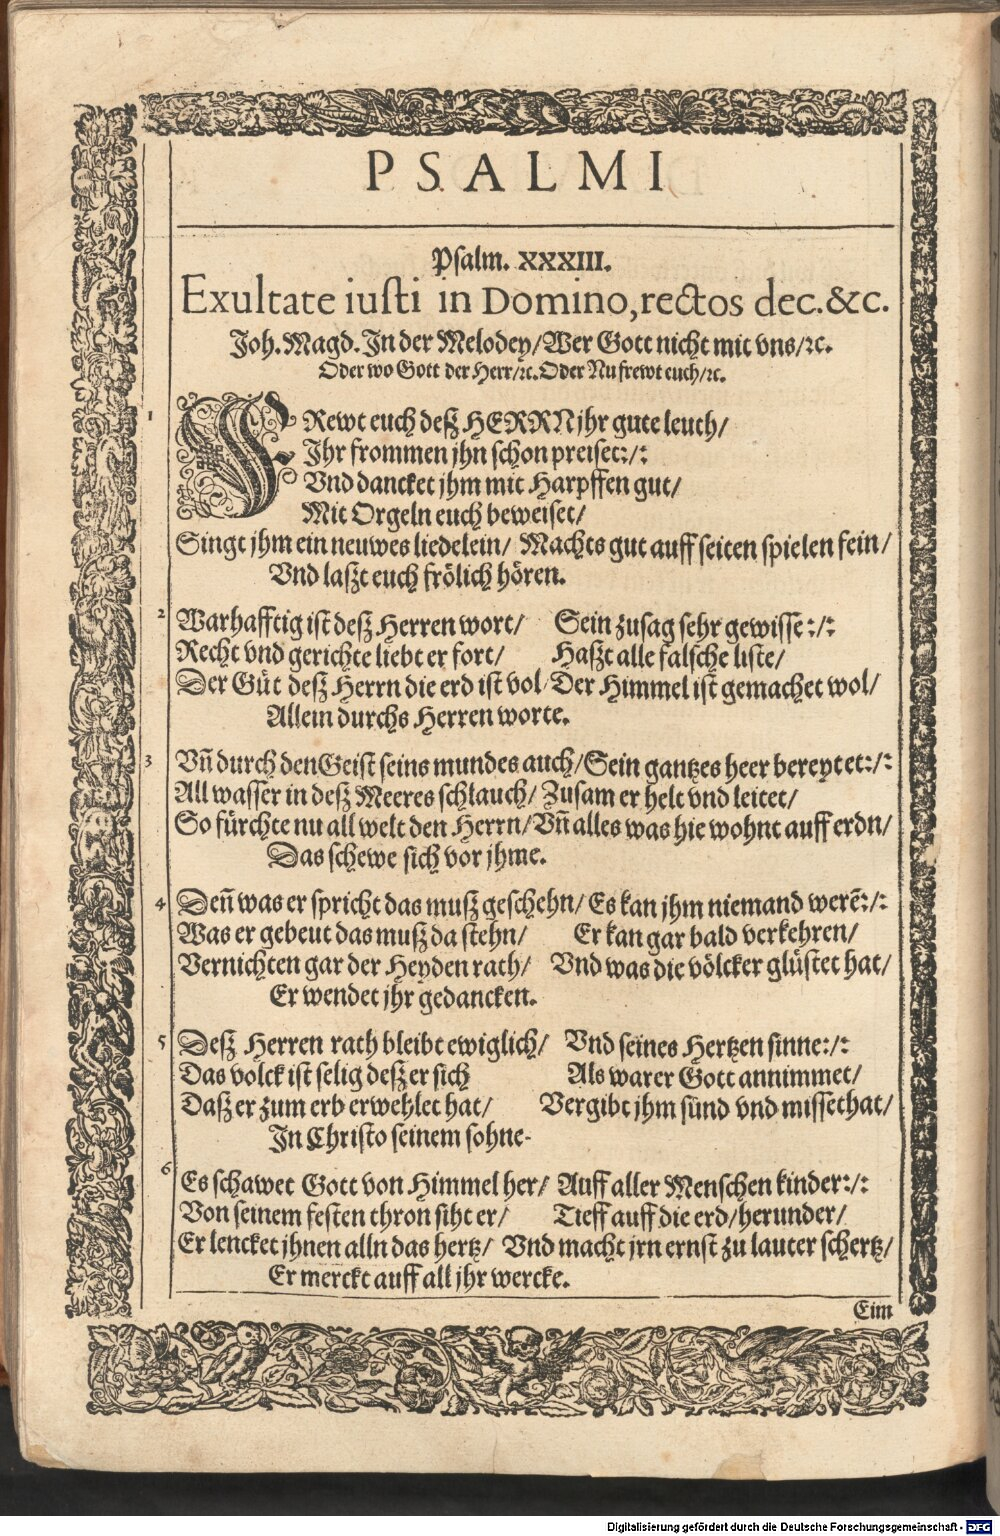 PSALMI
Psalm. XXXIII.
Exultate iusti in Domino, rectos dec. &c.
Joh. Magd. In der Melodey/ Wer Gott nicht mit vns/ ꝛc.
Oder wo Gott der Herr/ ꝛc. Oder Nu frewt euch/ ꝛc.
1 FRewt euch deß HERRN jhr gute leuth/
Jhr frommen jhn schon preiset:/:
Vnd dancket jhm mit Harpffen gut/
Mit Orgeln euch beweiset/
Singt jhm ein neuwes liedelein/ Machts gut auff seiten spielen fein/
Vnd laßt euch frölich hören.
2 Warhafftig ist deß Herren wort/ Sein zusag sehr gewisse:/:
Recht vnd gerichte liebt er fort/ Haßt alle falsche liste/
Der Güt deß Herrn die erd ist vol/ Der Himmel ist gemachet wol/
Allein durchs Herren worte.
3 Vñ durch den Geist seins mundes auch/ Sein gantzes heer bereytet:/:
All wasser in deß Meeres schlauch/ Zusam er helt vnd leitet/
So fürchte nu all welt den Herrn/ Vñ alles was hie wohnt auff erdn/
Das schewe sich vor jhme.
4 Deñ was er spricht das muß geschehn/ Es kan jhm niemand werẽ:/:
Was er gebeut das muß da stehn/ Er kan gar bald verkehren/
Vernichten gar der Heyden rath/ Vnd was die völcker glüstet hat/
Er wendet jhr gedancken.
5 Deß Herren rath bleibt ewiglich/ Vnd seines Hertzen sinne:/:
Das volck ist selig deß er sich Als warer Gott annimmet/
Daß er zum erb erwehlet hat/ Vergibt jhm sünd vnd missethat/
Jn Christo seinem sohne.
6 Es schawet Gott von Himmel her/ Auff aller Menschen kinder:/:
Von seinem festen thron siht er/ Tieff auff die erd/ herunder/
Er lencket jhnen alln das hertz/ Vnd macht jrn ernst zu lauter schertz/
Er merckt auff all jhr wercke.
Eim
Digitalisierung gefördert durch die Deutsche Forschungsgemeinschaft - DFG